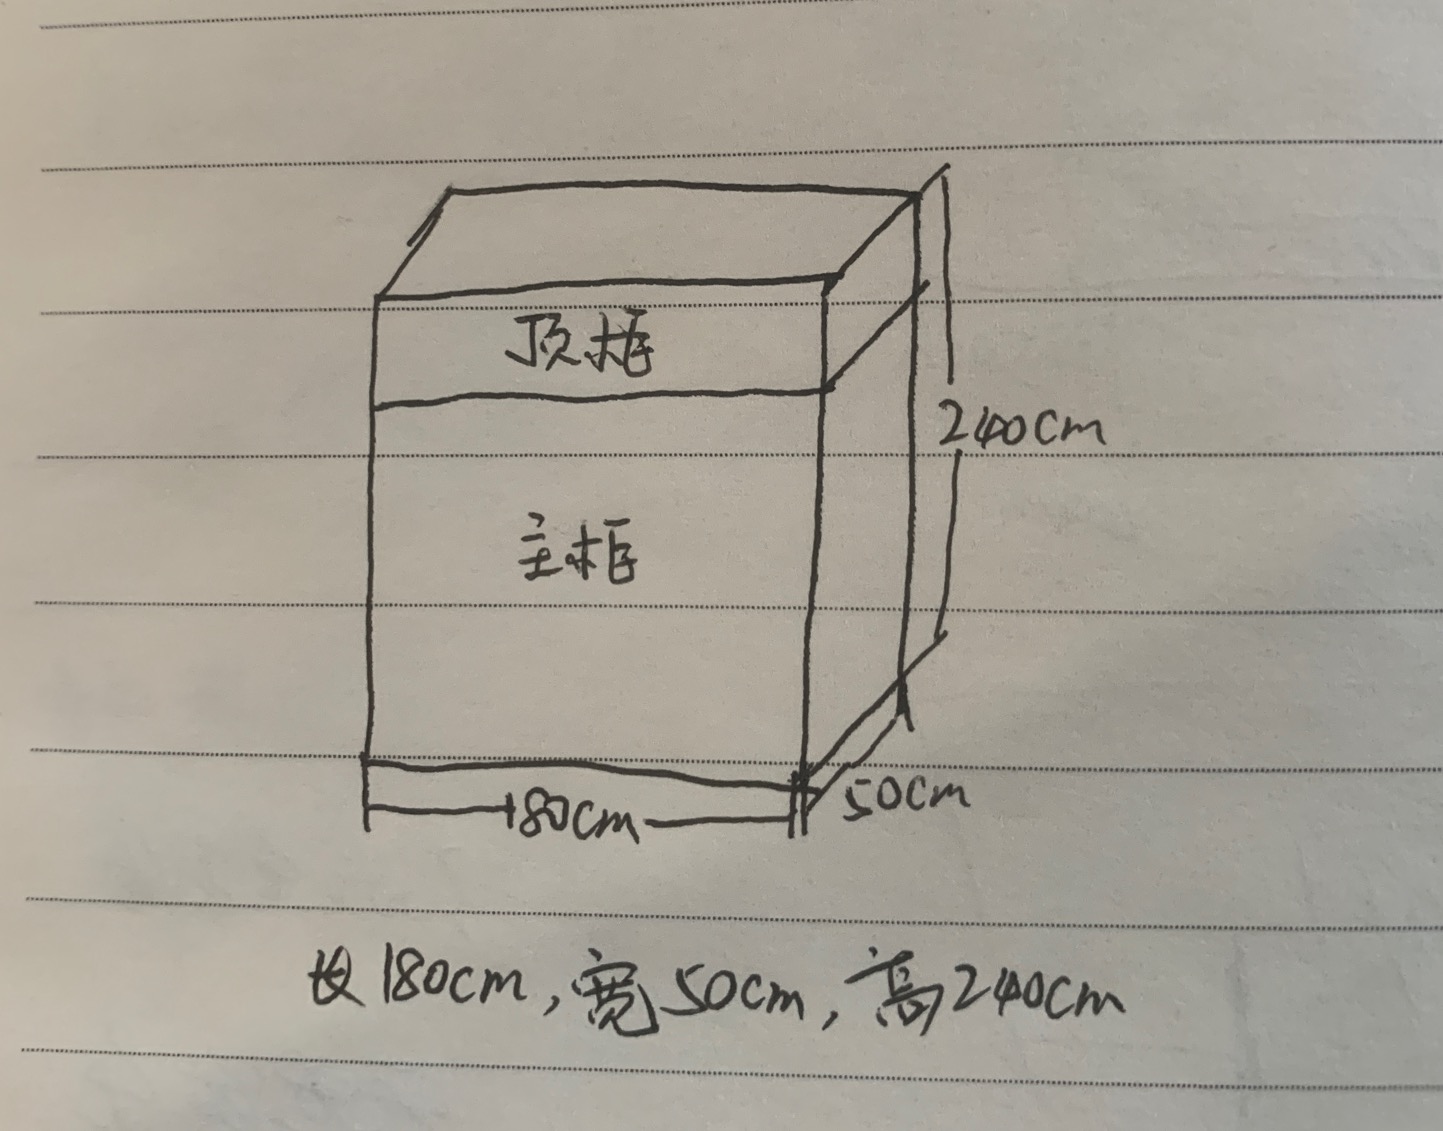 顶柜
主柜
240cm
50cm
180cm
长180cm,宽50cm,高240cm